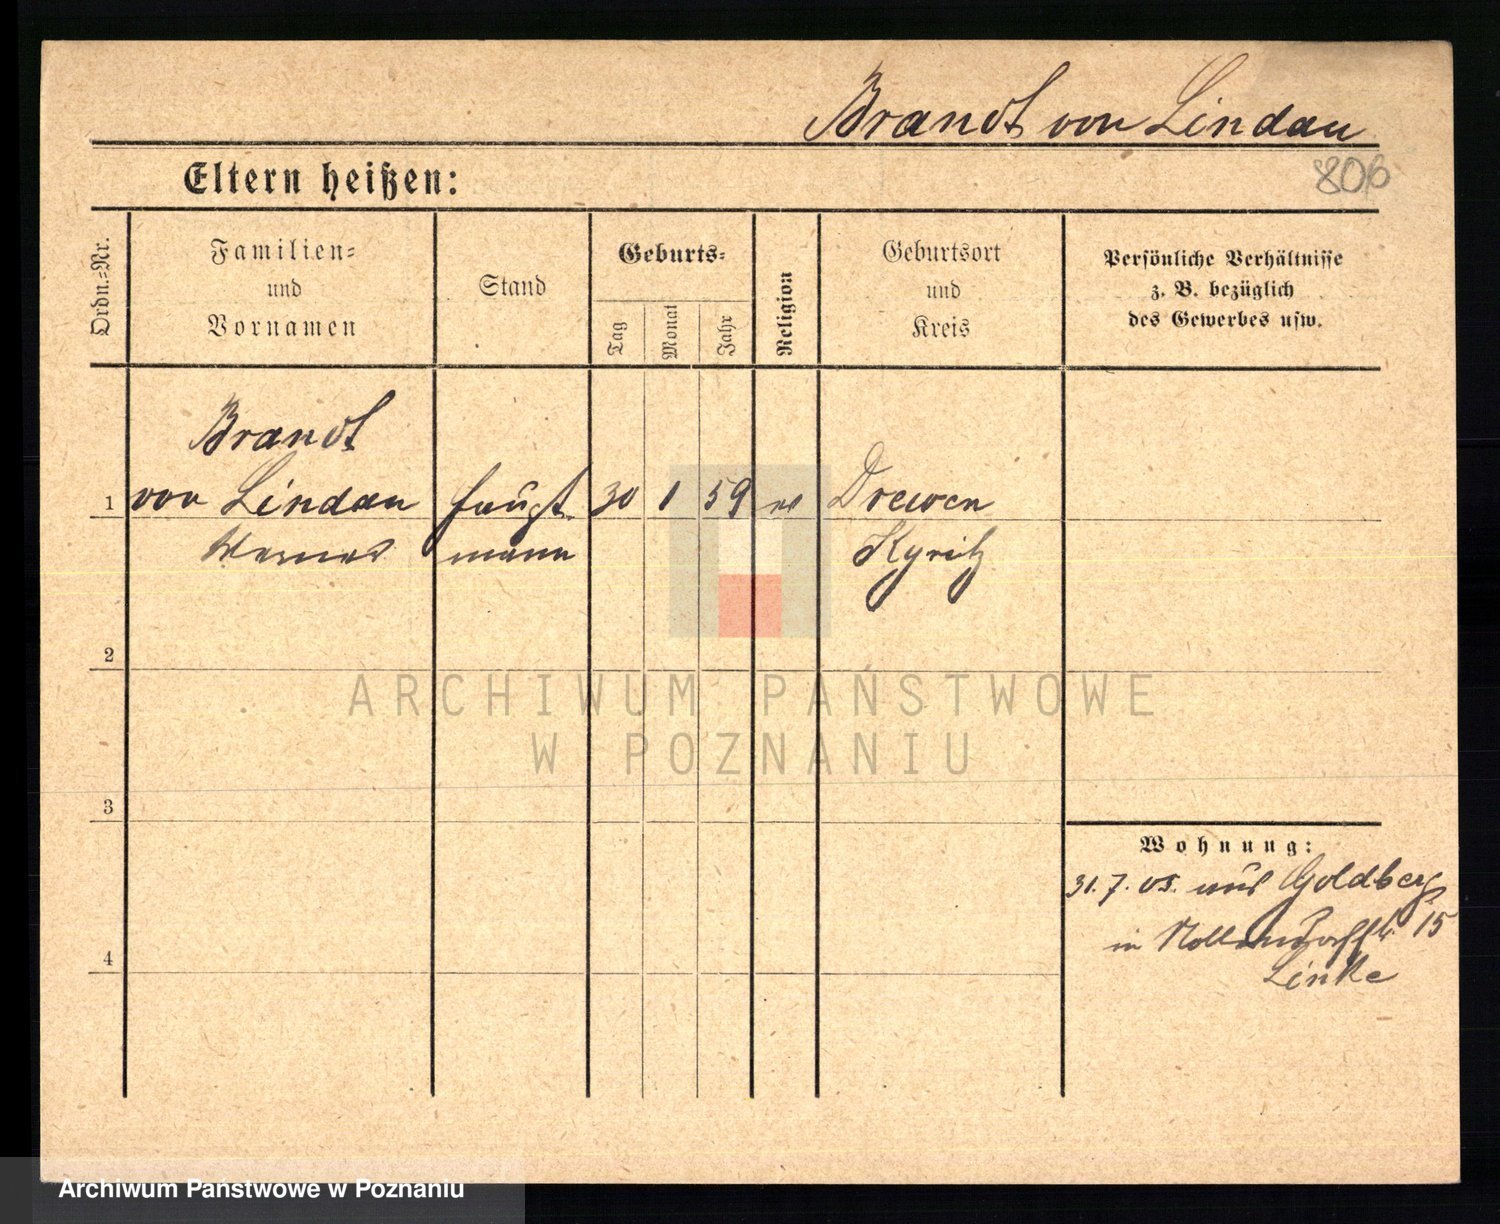 Brandt von Lindau
Eltern heißen:
806
Ordn.-Nr.
Familien-
und
Vornamen
Stand
Geburts-
Tag
Monat
Jahr
Religion
Geburtsort
und
Kreis
Persönliche Verhältnisse
z. B. bezüglich
des Gewerbes usw.
Brandt
1 von Lindau Haupt- 30 1 59 Drewen
Werner mann Kyritz
2
3
4
Wohnung:
31.7.05. aus Goldberg
in Nollendorffstr. 15
Linke
ARCHIWUM PAŃSTWOWE
W POZNANIU
Archiwum Państwowe w Poznaniu